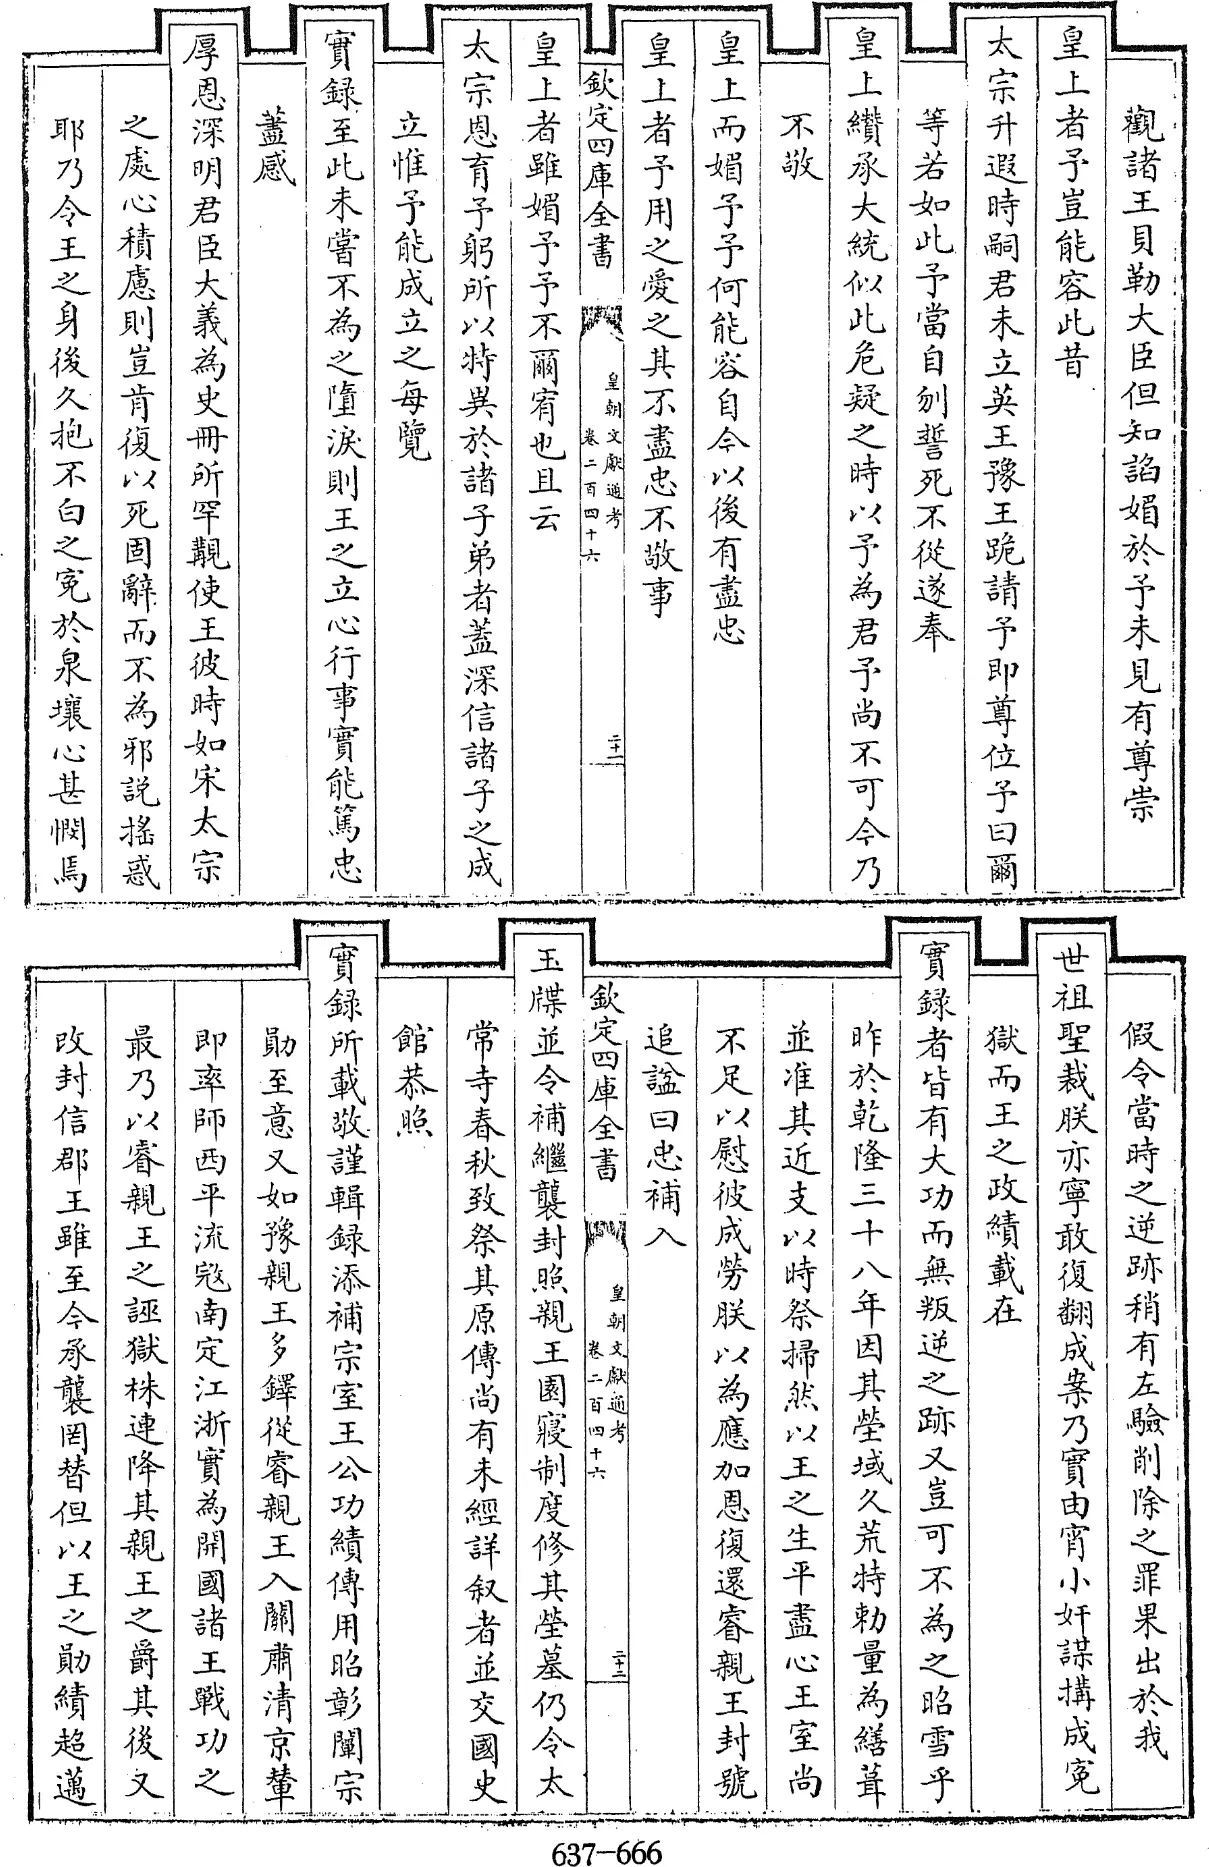 觀諸王貝勒大臣但知諂媚於予未見有尊崇
皇上者予豈能容此昔
太宗升遐時嗣君未立英王豫王跪請予即尊位予曰爾
等若如此予當自刎誓死不從遂奉
皇上纘承大統似此危疑之時以予為君予尚不可今乃
不敬
皇上而媚予予何能容自今以後有盡忠
皇上者予用之愛之其不盡忠不敬事
欽定四庫全書
皇朝文獻通考
卷二百四十六
二十一
皇上者雖媚予予不爾宥也且云
太宗恩育予躬所以特異於諸子弟者蓋深信諸子之成
立惟予能成立之每覽
實録至此未嘗不為之墮淚則王之立心行事實能篤忠
藎感
厚恩深明君臣大義為史冊所罕覯使王彼時如宋太宗
之處心積慮則豈肯復以死固辭而不為邪說搖惑
耶乃令王之身後久抱不白之寃於泉壤心甚憫焉
假令當時之逆跡稍有左驗削除之罪果出於我
世祖聖裁朕亦寧敢復翻成案乃實由宵小奸謀搆成寃
獄而王之政績載在
實録者皆有大功而無叛逆之跡又豈可不為之昭雪乎
昨於乾隆三十八年因其塋域久荒特勅量為繕葺
並准其近支以時祭掃然以王之生平盡心王室尚
不足以慰彼成勞朕以為應加恩復還睿親王封號
追諡曰忠補入
欽定四庫全書
皇朝文獻通考
卷二百四十六
二十二
玉牒並令補繼襲封照親王園寢制度修其塋墓仍令太
常寺春秋致祭其原傳尚有未經詳叙者並交國史
館恭照
實録所載敬謹輯録添補宗室王公功績傳用昭彰闡宗
勛至意又如豫親王多鐸從睿親王入關肅清京輦
即率師西平流宼南定江浙實為開國諸王戰功之
最乃以睿親王之誣獄株連降其親王之爵其後又
改封信郡王雖至今承襲罔替但以王之勛績超邁
637-666